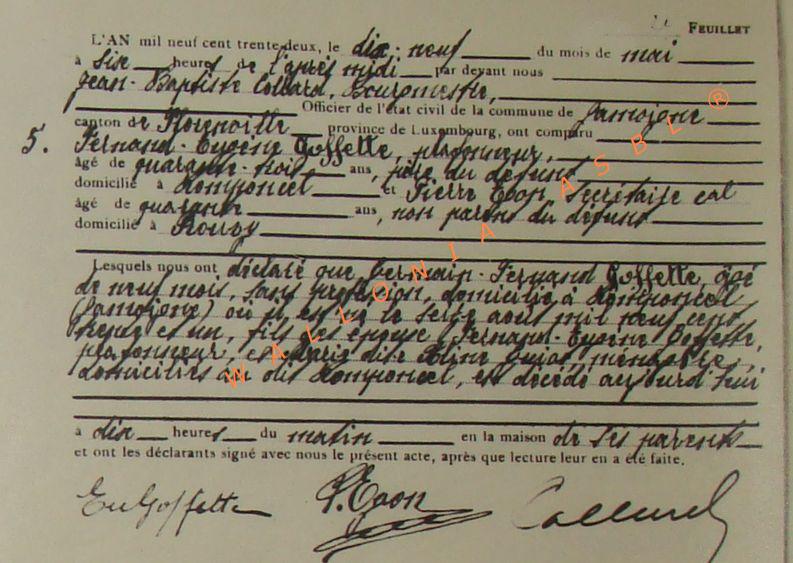 FEUILLET
L'AN mil neuf cent trente deux, le dix-neuf du mois de mai
à six heures de l'après midi par devant nous
Jean-Baptiste Collard, Bourgmestre,
Officier de l'état civil de la commune de Jamoigne
canton de Florenville province de Luxembourg, ont comparu
5. Fernand-Eugène Goffette, plafonneur,
âgé de quarante-trois ans, père du défunt
domicilié à Romponcel et Pierre Evon, Secrétaire cal
âgé de quarante ans, non parent du défunt
domicilié à
Lesquels nous ont déclaré que Germain-Fernand Goffette, âgé
de neuf mois, sans profession, domicilié à Romponcel
(Jamoigne) où il est né le seize août mil neuf cent
trente et un, fils des époux Fernand-Eugène Goffette,
plafonneur, et Marie dite Aline ménagère,
domiciliés au dit Romponcel, est décédé aujourd'hui
à dix heures du matin en la maison de ses parents
et ont les déclarants signé avec nous le présent acte, après que lecture leur en a été faite.
Eu Goffette P. Evon Collard
WALLONIA ASBL ®